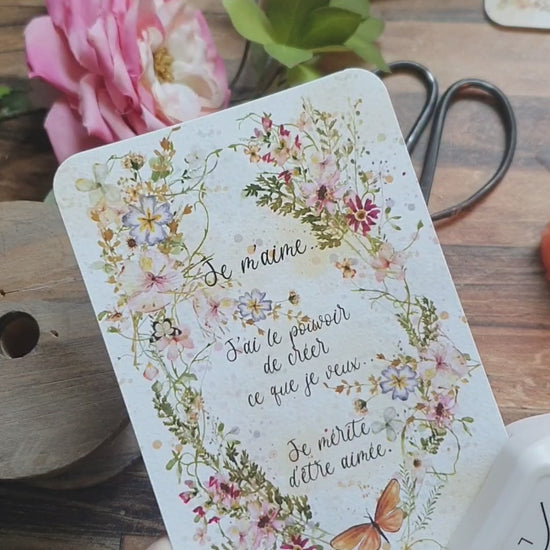 Je m'aime...
J'ai le pouvoir
de créer
ce que je veux...
Je mérite
d'être aimée.